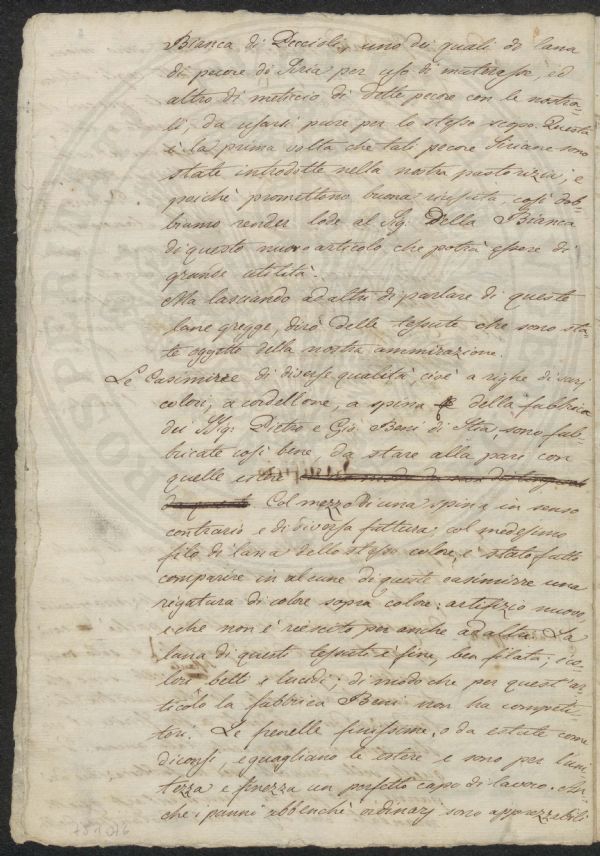 Bianca di Peccioli, uno dei quali di lana
di pecore di Siria per uso di materasse, ed
altro di meticcio di dette pecore con le nostra-
li, da usarsi pure per lo stesso scopo. Questa
è la prima volta che tali pecore Siriane sono
state introdotte nella nostra pastorizia; e
poichè promettono buona riuscita, così dob-
biamo render lode al Sig. Della Bianca
di questo nuovo articolo, che potrà essere di
grande utilità.
Ma lasciando ad altri di parlare di queste
lane gregge, dirò delle tessute che sono sta-
te oggetto della nostra ammirazione.
Le Casimirre di diverse qualità, cioè a righe di varj
colori, a cordellone, a spina della fabbrica
dei Sigg. Pietro e Gio. Beni di Stia, sono fab-
bricate così bene, da stare alla pari con
quelle estere
Col mezzo di una spina in senso
contrario e di diversa fattura col medesimo
filo di lana dello stesso colore, è stato fatto
comparire in alcune di queste casimirre una
rigatura di colore sopra colore: artifizio nuovo,
e che non è riescito per anche ad altri. La
lana di questi tessuti è fine, ben filata; i co-
lori belli e lucidi; di modo che per quest'ar-
ticolo la fabbrica Beni non ha competi-
tori. Le frenelle finissime, o da estate come
diconsi, eguagliano le estere e sono per
e finezza un perfetto capo di lavoro. An-
che i panni abbenchè ordinarj sono apprezzabili
PROSPERITATI